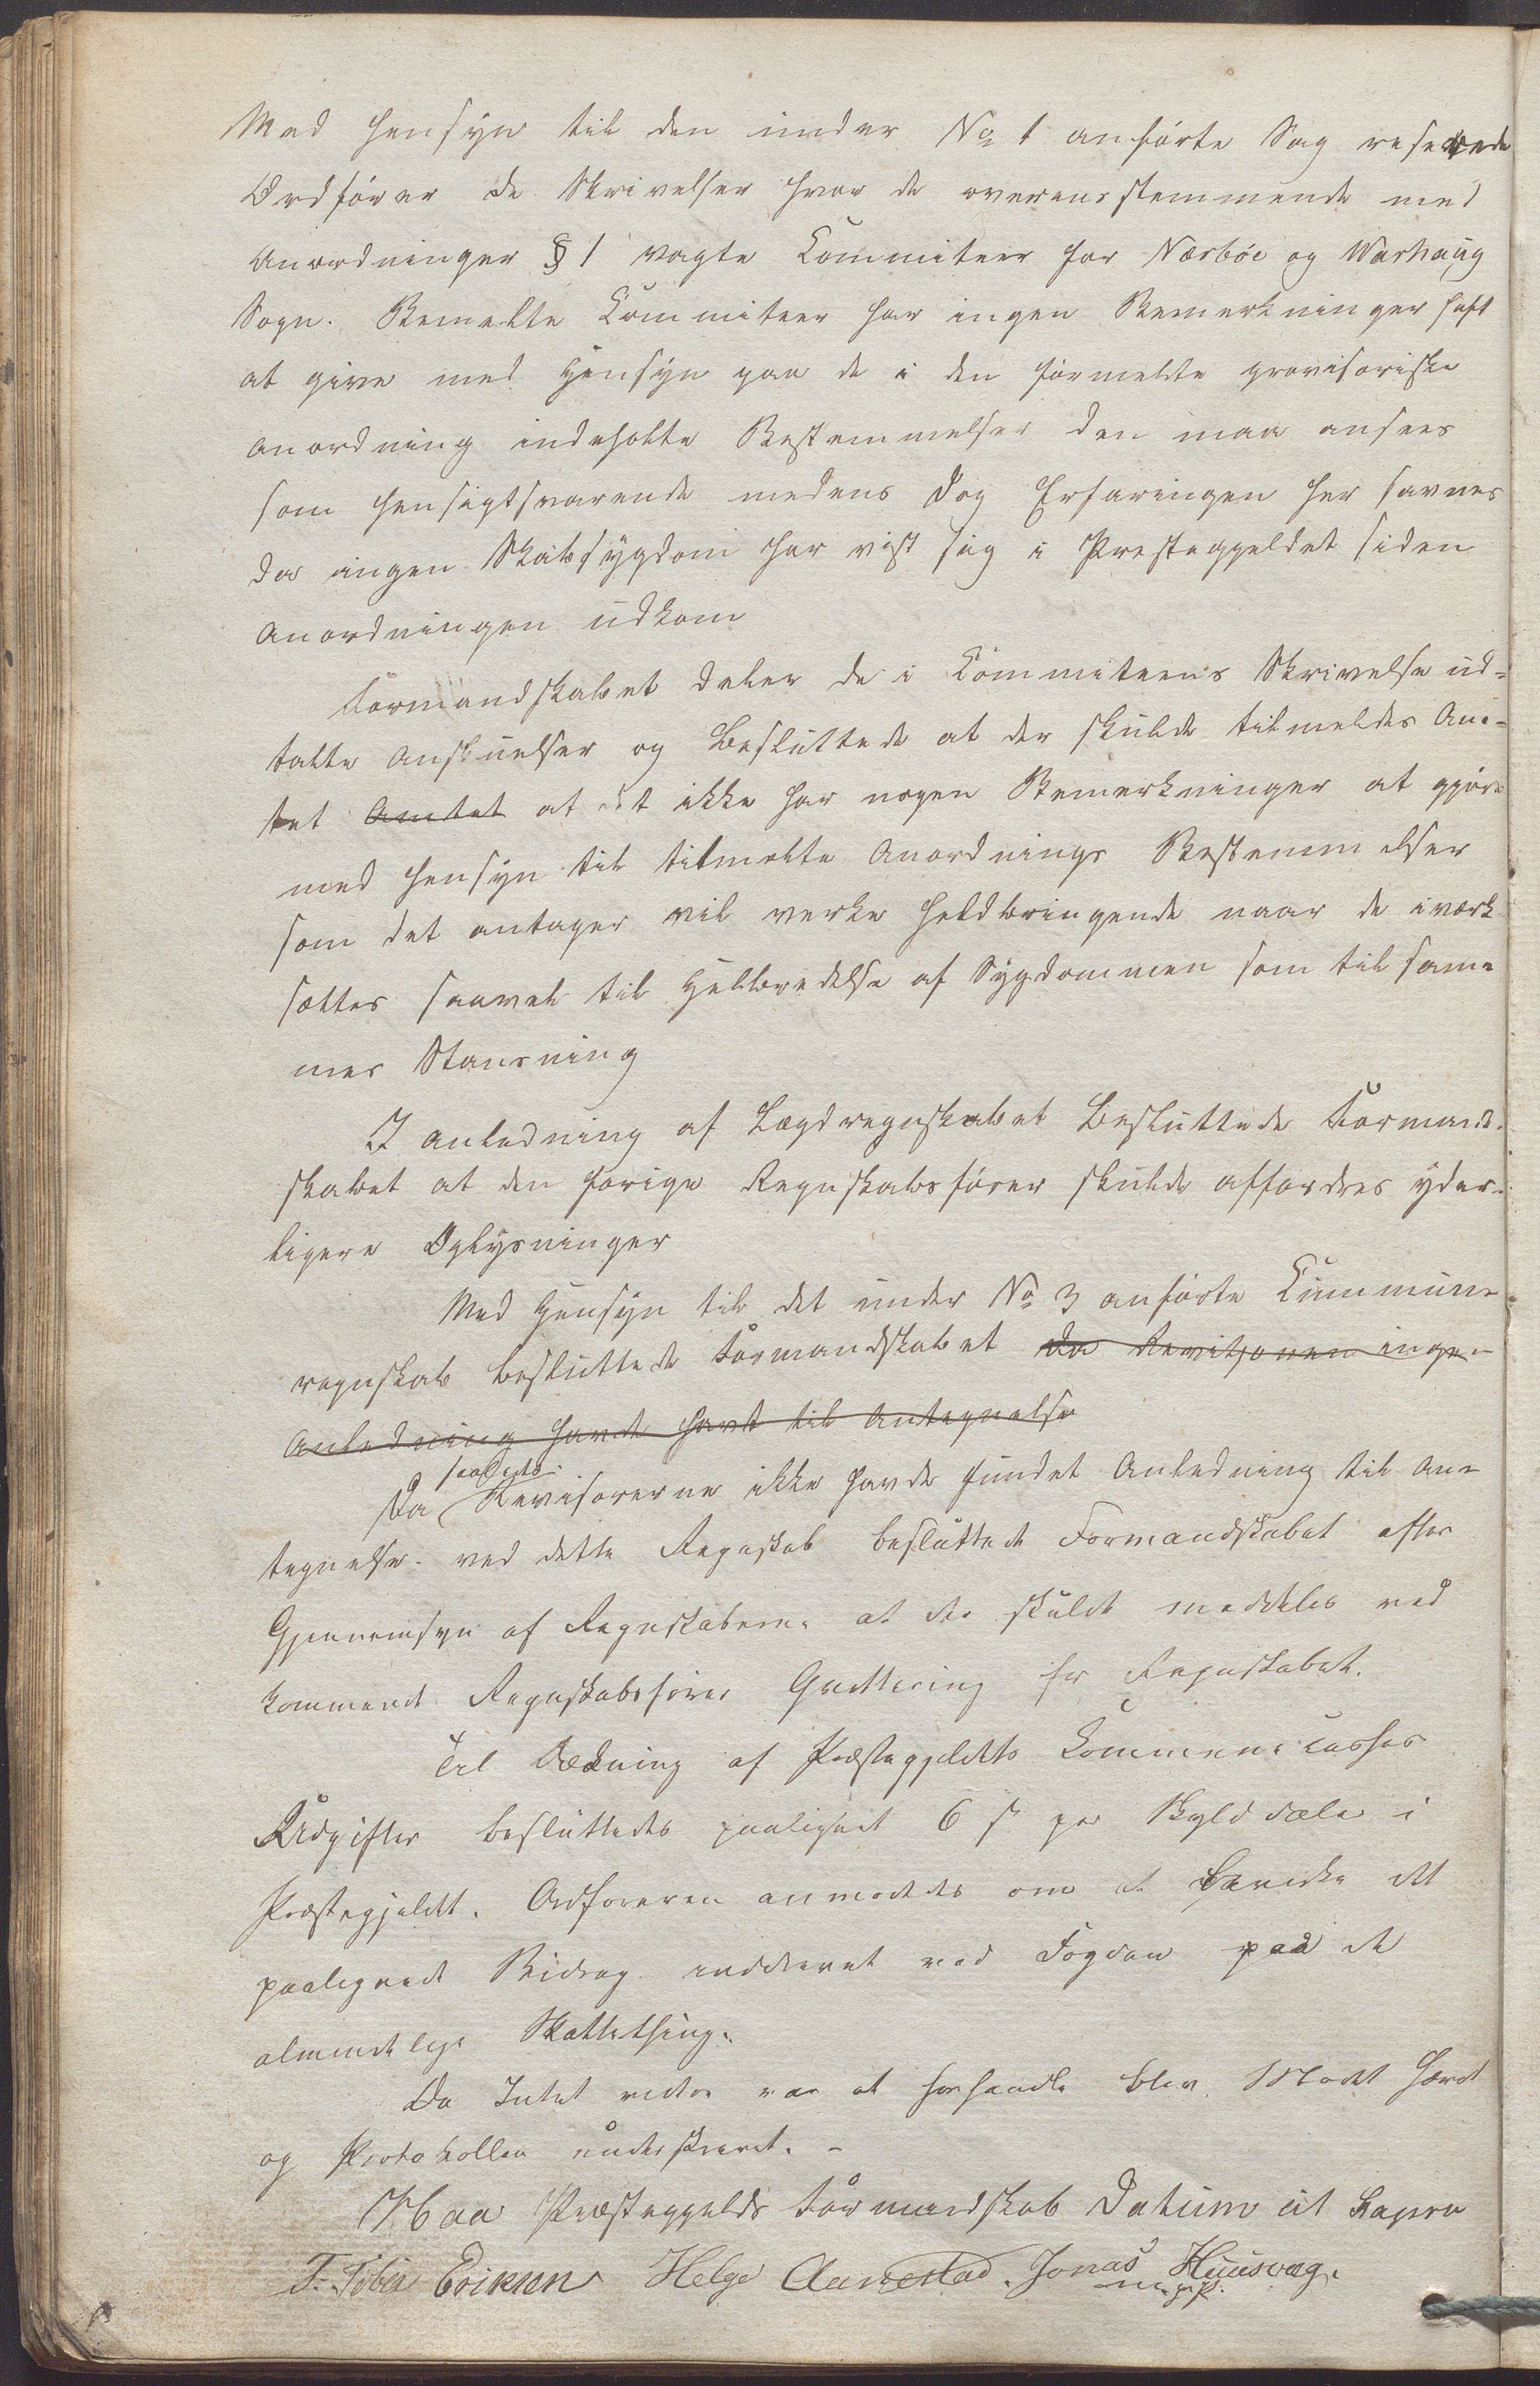 Med Hensyn til den under No 1 anförte Sag refererede
Ordförer de Skrivelser hvor de overensstemmende med
Anordninger § 1 valgte Committeer for Nærböe og Warhaug
Sogn. Bemelte Committeer har ingen Bemerkninger haft
at give med Hensyn paa de i den formeldte provisoriske
anordning indeholte Bestemmelser den maa ansees
som hensigtsvarende medens dog Erfaringen her savnes
da ingen Skabsygdom har vist sig i Prestegjeldet siden
Anordningen udkom
Formandskabet deler de i Committeens Skrivelse ud-
talte Anskuelser og Besluttede at der skulde tilmeldes Am-
tet Amtet at det ikke har nogen Bemerkninger at gjöre
med Hensyn til tilmelte Anordnings Bestemmelser
som det antager vil verke heldbringende naar de iværk
sættes saavel til Helbredelse af Sygdommen som til sam-
mes Standsning
I Anledning af Lægdregnskabet Besluttede Formand-
skabet at den forige Regnskabsförer skulde affordres yder-
ligere Oplysninger
Med Hensyn til det under No 3 anförte Kummune
regnskab besluttede Formandskabet da Revisjonen ingen
Anledning havde havt til Antegnelse
saaledes
Da Revisorerne ikke havde fundet Anledning til An-
tegnelse ved dette Regnskab besluttede Formandskabet efter
Gjennemsyn af Regnskaberne at der skulde meddeles ved
kommende Regnskabsförer Qvittering for Regnskabet.
Til Dækning af Præstegjeldets Kommunecasses
Udgifter besluttedes paalignet 6 s per Skylddaler i
Præstegjeldet. Ordföreren anmodedes om at bevirke det
paalignede Bidrag inddrevet ved Fogden paa de
almindelige Skattething.
Da Intet videre var at forhandle blev Mödet hævet
og Protokollen underskrevet. -
Haa Præstegjelds Formandskab Datum ut supra
T. Tobias Eriksen Helge Aanestad. Jonas Huusvæg.
m. p. P.